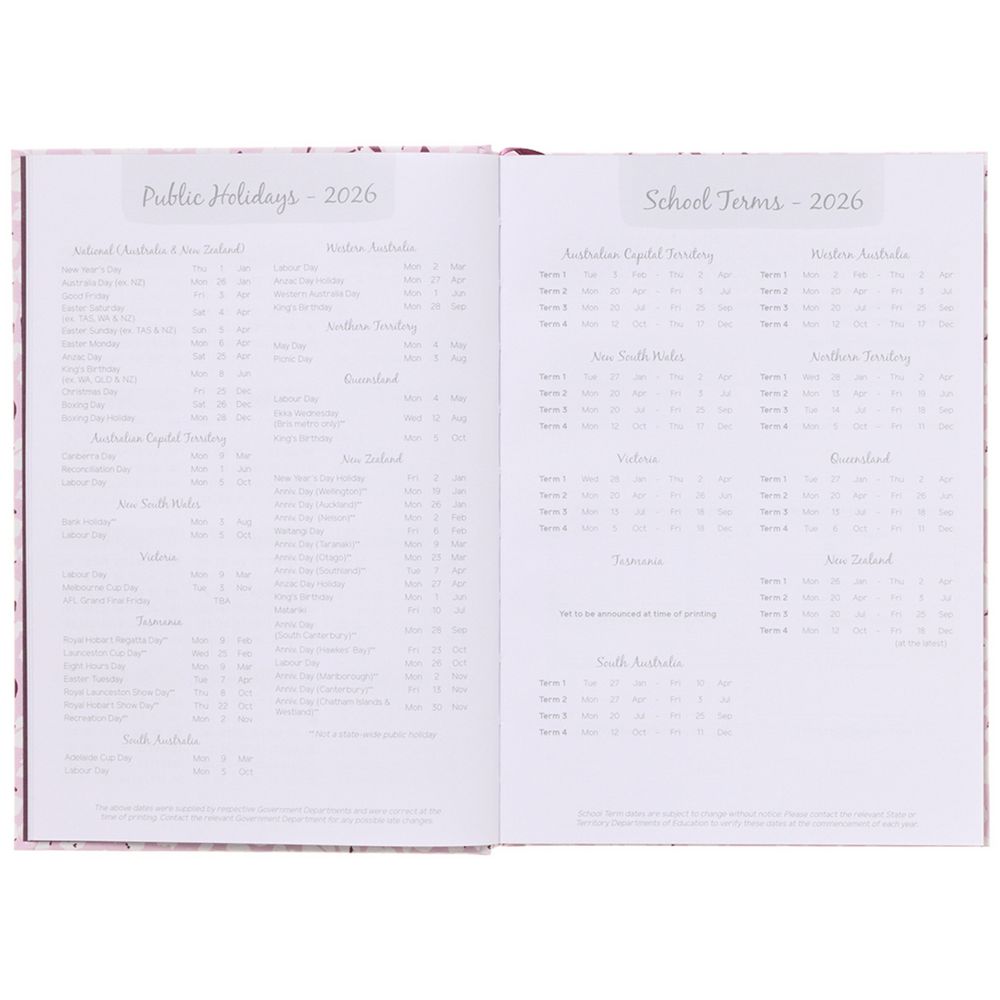 Public Holidays - 2026
National (Australia & New Zealand)
New Year's Day Thu 1 Jan
Australia Day (ex. NZ) Mon 26 Jan
Good Friday Fri 3 Apr
Easter Saturday
(ex. TAS, WA & NZ) Sat 4 Apr
Easter Sunday (ex. TAS & NZ) Sun 5 Apr
Easter Monday Mon 6 Apr
Anzac Day Sat 25 Apr
King's Birthday
(ex. WA, QLD & NZ) Mon 8 Jun
Christmas Day Fri 25 Dec
Boxing Day Sat 26 Dec
Boxing Day Holiday Mon 28 Dec
Australian Capital Territory
Canberra Day Mon 9 Mar
Reconciliation Day Mon 1 Jun
Labour Day Mon 5 Oct
New South Wales
Bank Holiday** Mon 3 Aug
Labour Day Mon 5 Oct
Victoria
Labour Day Mon 9 Mar
Melbourne Cup Day Tue 3 Nov
AFL Grand Final Friday TBA
Tasmania
Royal Hobart Regatta Day** Mon 9 Feb
Launceston Cup Day** Wed 25 Feb
Eight Hours Day Mon 9 Mar
Easter Tuesday Tue 7 Apr
Royal Launceston Show Day** Thu 8 Oct
Royal Hobart Show Day** Thu 22 Oct
Recreation Day** Mon 2 Nov
South Australia
Adelaide Cup Day Mon 9 Mar
Labour Day Mon 5 Oct
Western Australia
Labour Day Mon 2 Mar
Anzac Day Holiday Mon 27 Apr
Western Australia Day Mon 1 Jun
King's Birthday Mon 28 Sep
Northern Territory
May Day Mon 4 May
Picnic Day Mon 3 Aug
Queensland
Labour Day Mon 4 May
Ekka Wednesday
(Bris metro only)** Wed 12 Aug
King's Birthday Mon 5 Oct
New Zealand
New Year's Day Holiday Fri 2 Jan
Anniv. Day (Wellington)** Mon 19 Jan
Anniv. Day (Auckland)** Mon 26 Jan
Anniv. Day (Nelson)** Mon 2 Feb
Waitangi Day Fri 6 Feb
Anniv. Day (Taranaki)** Mon 9 Mar
Anniv. Day (Otago)** Mon 23 Mar
Anniv. Day (Southland)** Tue 7 Apr
Anzac Day Holiday Mon 27 Apr
King's Birthday Mon 1 Jun
Matariki Fri 10 Jul
Anniv. Day
(South Canterbury)** Mon 28 Sep
Anniv. Day (Hawkes' Bay)** Fri 23 Oct
Labour Day Mon 26 Oct
Anniv. Day (Marlborough)** Mon 2 Nov
Anniv. Day (Canterbury)** Fri 13 Nov
Anniv. Day (Chatham Islands &
Westland)** Mon 30 Nov
** Not a state-wide public holiday
The above dates were supplied by respective Government Departments and were correct at the
time of printing. Contact the relevant Government Department for any possible late changes.
School Terms - 2026
Australian Capital Territory
Term 1 Tue 3 Feb - Thu 2 Apr
Term 2 Mon 20 Apr - Fri 3 Jul
Term 3 Mon 20 Jul - Fri 25 Sep
Term 4 Mon 12 Oct - Thu 17 Dec
New South Wales
Term 1 Tue 27 Jan - Thu 2 Apr
Term 2 Mon 20 Apr - Fri 3 Jul
Term 3 Mon 20 Jul - Fri 25 Sep
Term 4 Mon 12 Oct - Thu 17 Dec
Victoria
Term 1 Wed 28 Jan - Thu 2 Apr
Term 2 Mon 20 Apr - Fri 26 Jun
Term 3 Mon 13 Jul - Fri 18 Sep
Term 4 Mon 5 Oct - Fri 18 Dec
Tasmania
Yet to be announced at time of printing
South Australia
Term 1 Tue 27 Jan - Fri 10 Apr
Term 2 Mon 27 Apr - Fri 3 Jul
Term 3 Mon 20 Jul - Fri 25 Sep
Term 4 Mon 12 Oct - Fri 11 Dec
Western Australia
Term 1 Mon 2 Feb - Thu 2 Apr
Term 2 Mon 20 Apr - Fri 3 Jul
Term 3 Mon 20 Jul - Fri 25 Sep
Term 4 Mon 12 Oct - Thu 17 Dec
Northern Territory
Term 1 Wed 28 Jan - Thu 2 Apr
Term 2 Mon 13 Apr - Fri 19 Jun
Term 3 Tue 14 Jul - Fri 18 Sep
Term 4 Mon 5 Oct - Fri 11 Dec
Queensland
Term 1 Tue 27 Jan - Thu 2 Apr
Term 2 Mon 20 Apr - Fri 26 Jun
Term 3 Mon 13 Jul - Fri 18 Sep
Term 4 Tue 6 Oct - Fri 11 Dec
New Zealand
Term 1 Mon 26 Jan - Thu 2 Apr
Term 2 Mon 20 Apr - Fri 3 Jul
Term 3 Mon 20 Jul - Fri 25 Sep
Term 4 Mon 12 Oct - Fri 18 Dec
(at the latest)
School Term dates are subject to change without notice. Please contact the relevant State or
Territory Departments of Education to verify these dates at the commencement of each year.